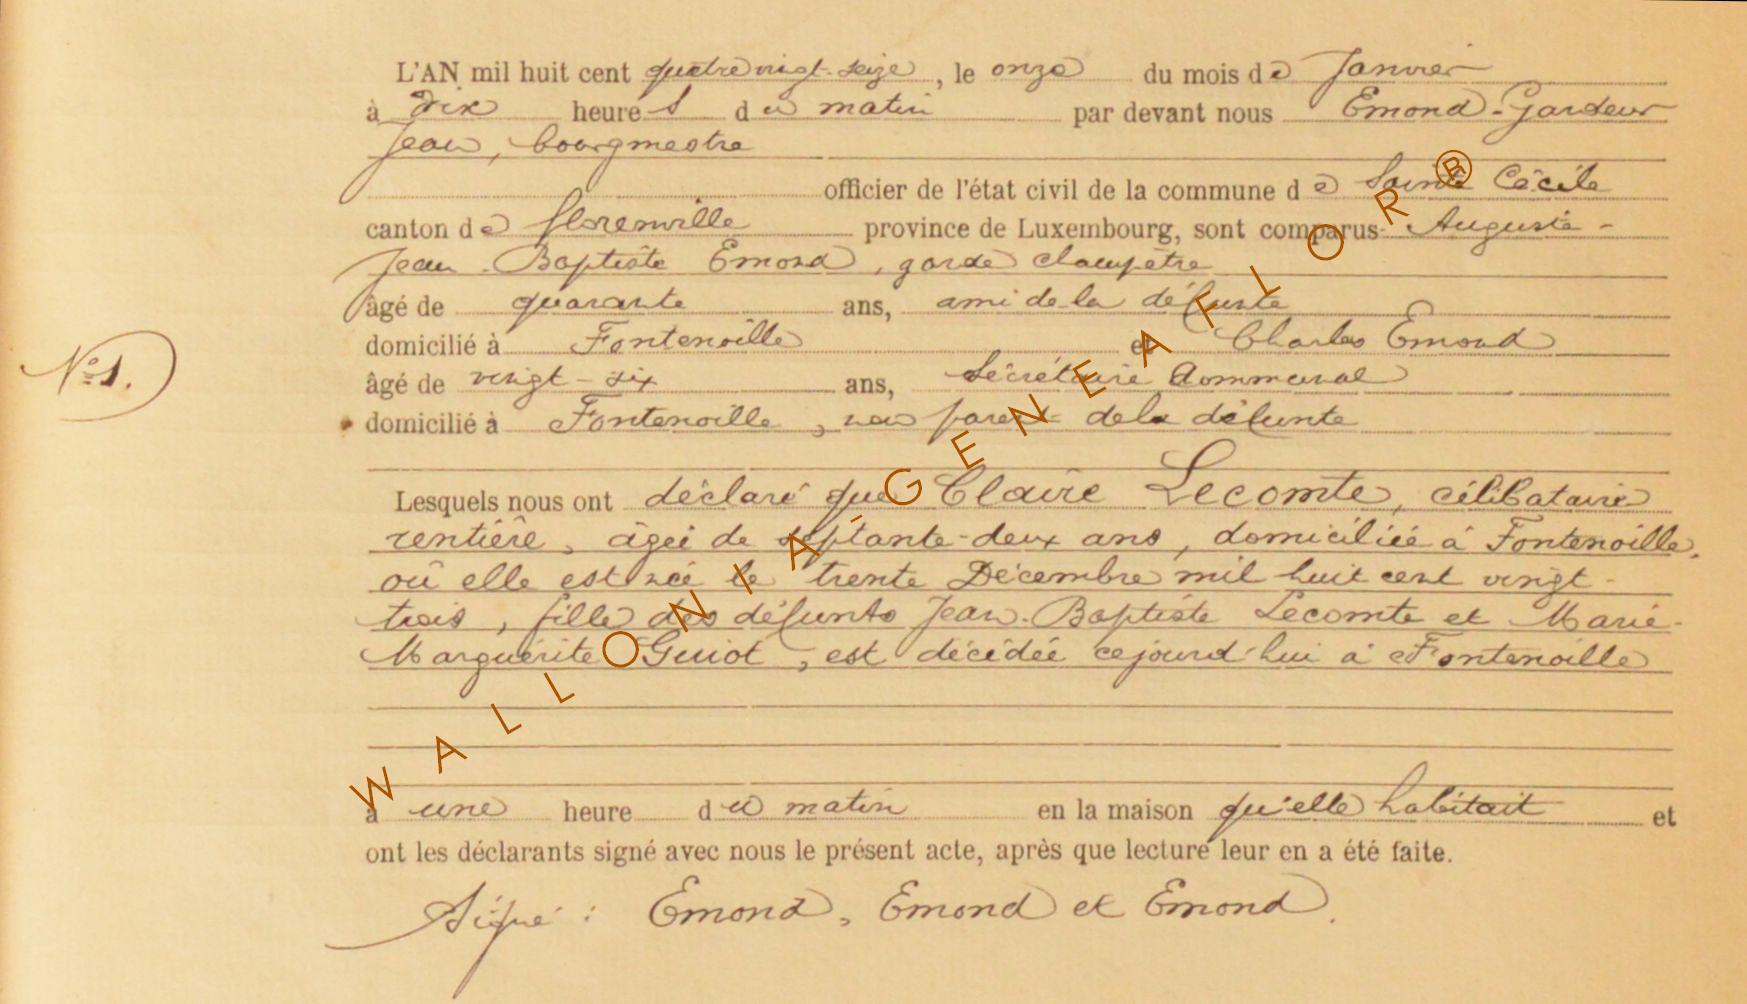 L'AN mil huit cent quatre vingt-seize, le onze du mois de Janvier
à dix heures du matin par devant nous Emond-Gardeur
Jean, bourgmestre
officier de l'état civil de la commune de Sainte Cécile
canton de Florenville province de Luxembourg, sont comparus Auguste-
Jean-Baptiste Emond, garde champêtre
âgé de quarante ans, ami de la défunte
domicilié à Fontenoille et Charles Emond
N° 1.
âgé de vingt-six ans, Secrétaire Communal
domicilié à Fontenoille, non parent de la défunte
Lesquels nous ont déclaré que Claire Lecomte, célibataire
rentière, âgée de septante-deux ans, domiciliée à Fontenoille,
où elle est née le trente Décembre mil huit cent vingt-
trois, fille des défunts Jean-Baptiste Lecomte et Marie-
Marguerite Guiot, est décédée cejourd'hui à Fontenoille
à une heure du matin en la maison qu'elle habitait et
ont les déclarants signé avec nous le présent acte, après que lecture leur en a été faite.
Signé : Emond, Emond et Emond.
WALLONIA-GENEAFLOR®